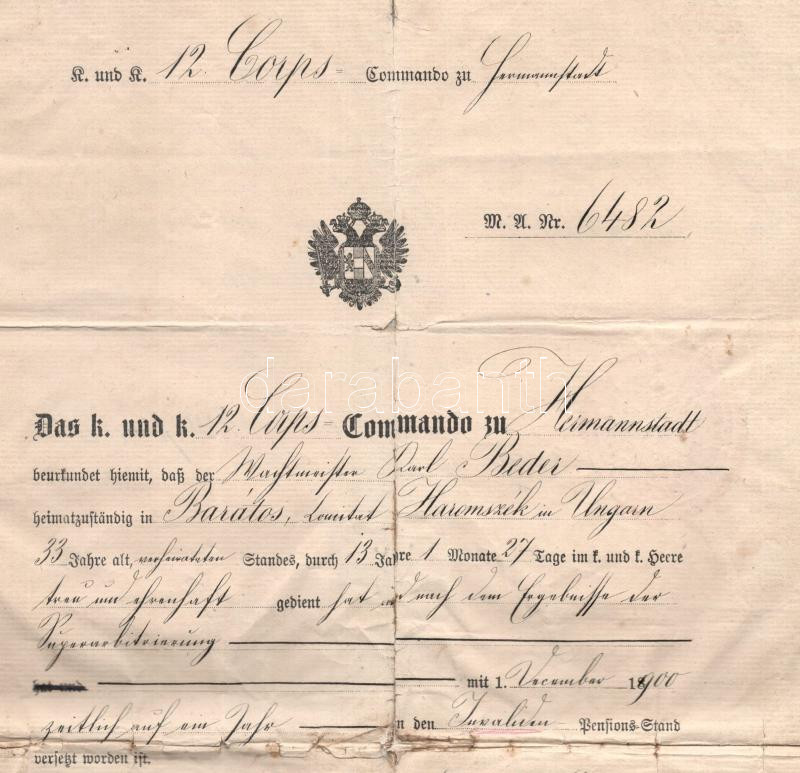 K. und K. 12. Corps= Commando zu Hermannstadt
M. A. Nr. 6482
darabanth
Das k. und k. 12. Corps= Commando zu Hermannstadt
beurkundet hiemit, daß der Wachtmeister Karl Beder
heimatzuständig in Barátos, Comitat Haromszék in Ungarn
33 Jahre alt, verheirateten Standes, durch 13 Jahre 1 Monate 27 Tage im k. und k. Heere
treu und ehrenhaft gedient hat und nach dem Ergebnisse der
Superarbitrierung
hat und mit 1. December 1900
zeitlich auf ein Jahr in den Invaliden Pensions-Stand
versetzt worden ist.